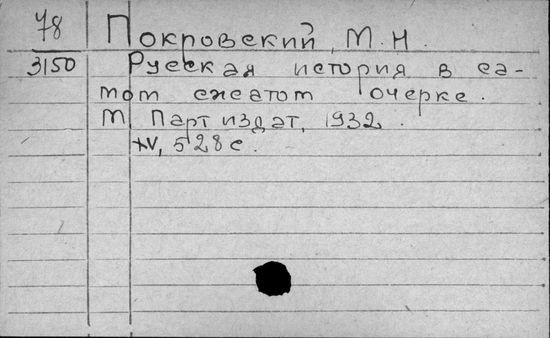 78 Покровский, М.Н.
3150 Русская история в са-
мом сжатом очерке.
М Партиздат, 1932.
XV, 528 с.